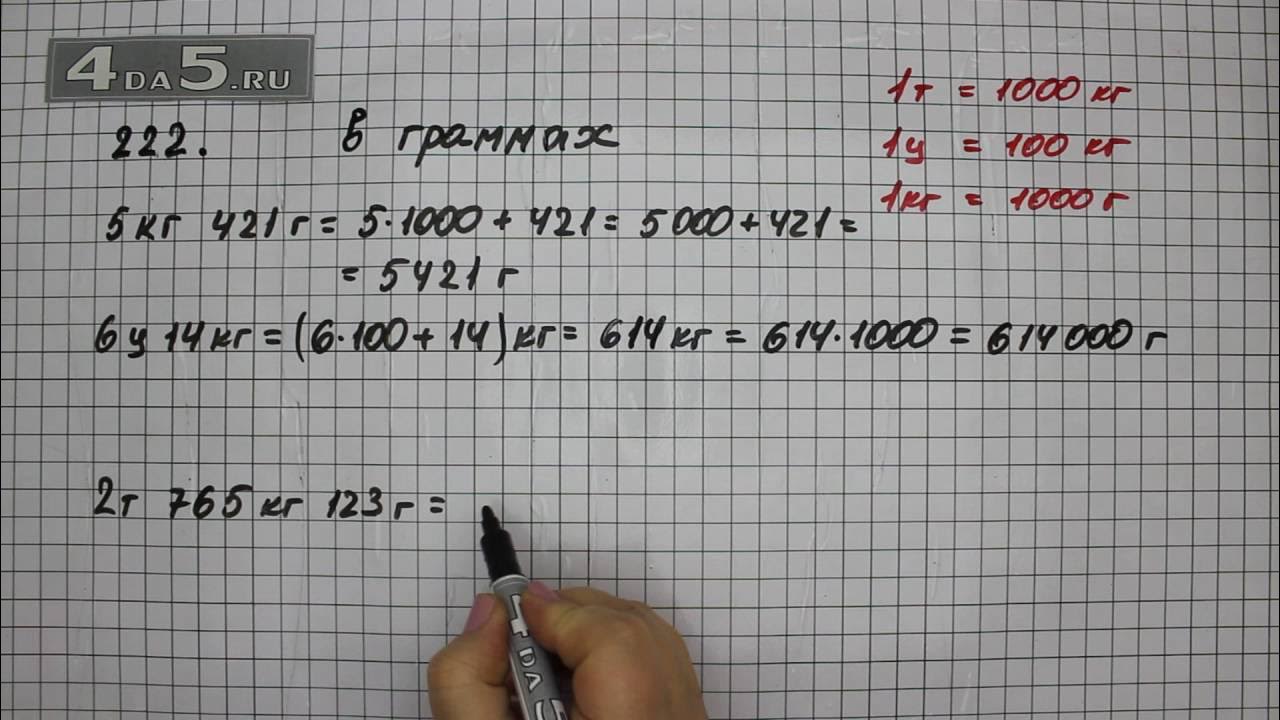 4DA5.RU
1т = 1000 кг
222. в граммах
1ц = 100 кг
1кг = 1000 г
5 кг 421 г = 5·1000 + 421 = 5 000 + 421 =
= 5421 г
6 ц 14 кг = (6·100 + 14) кг = 614 кг = 614·1000 = 614 000 г
2т 765 кг 123 г =
4DA5